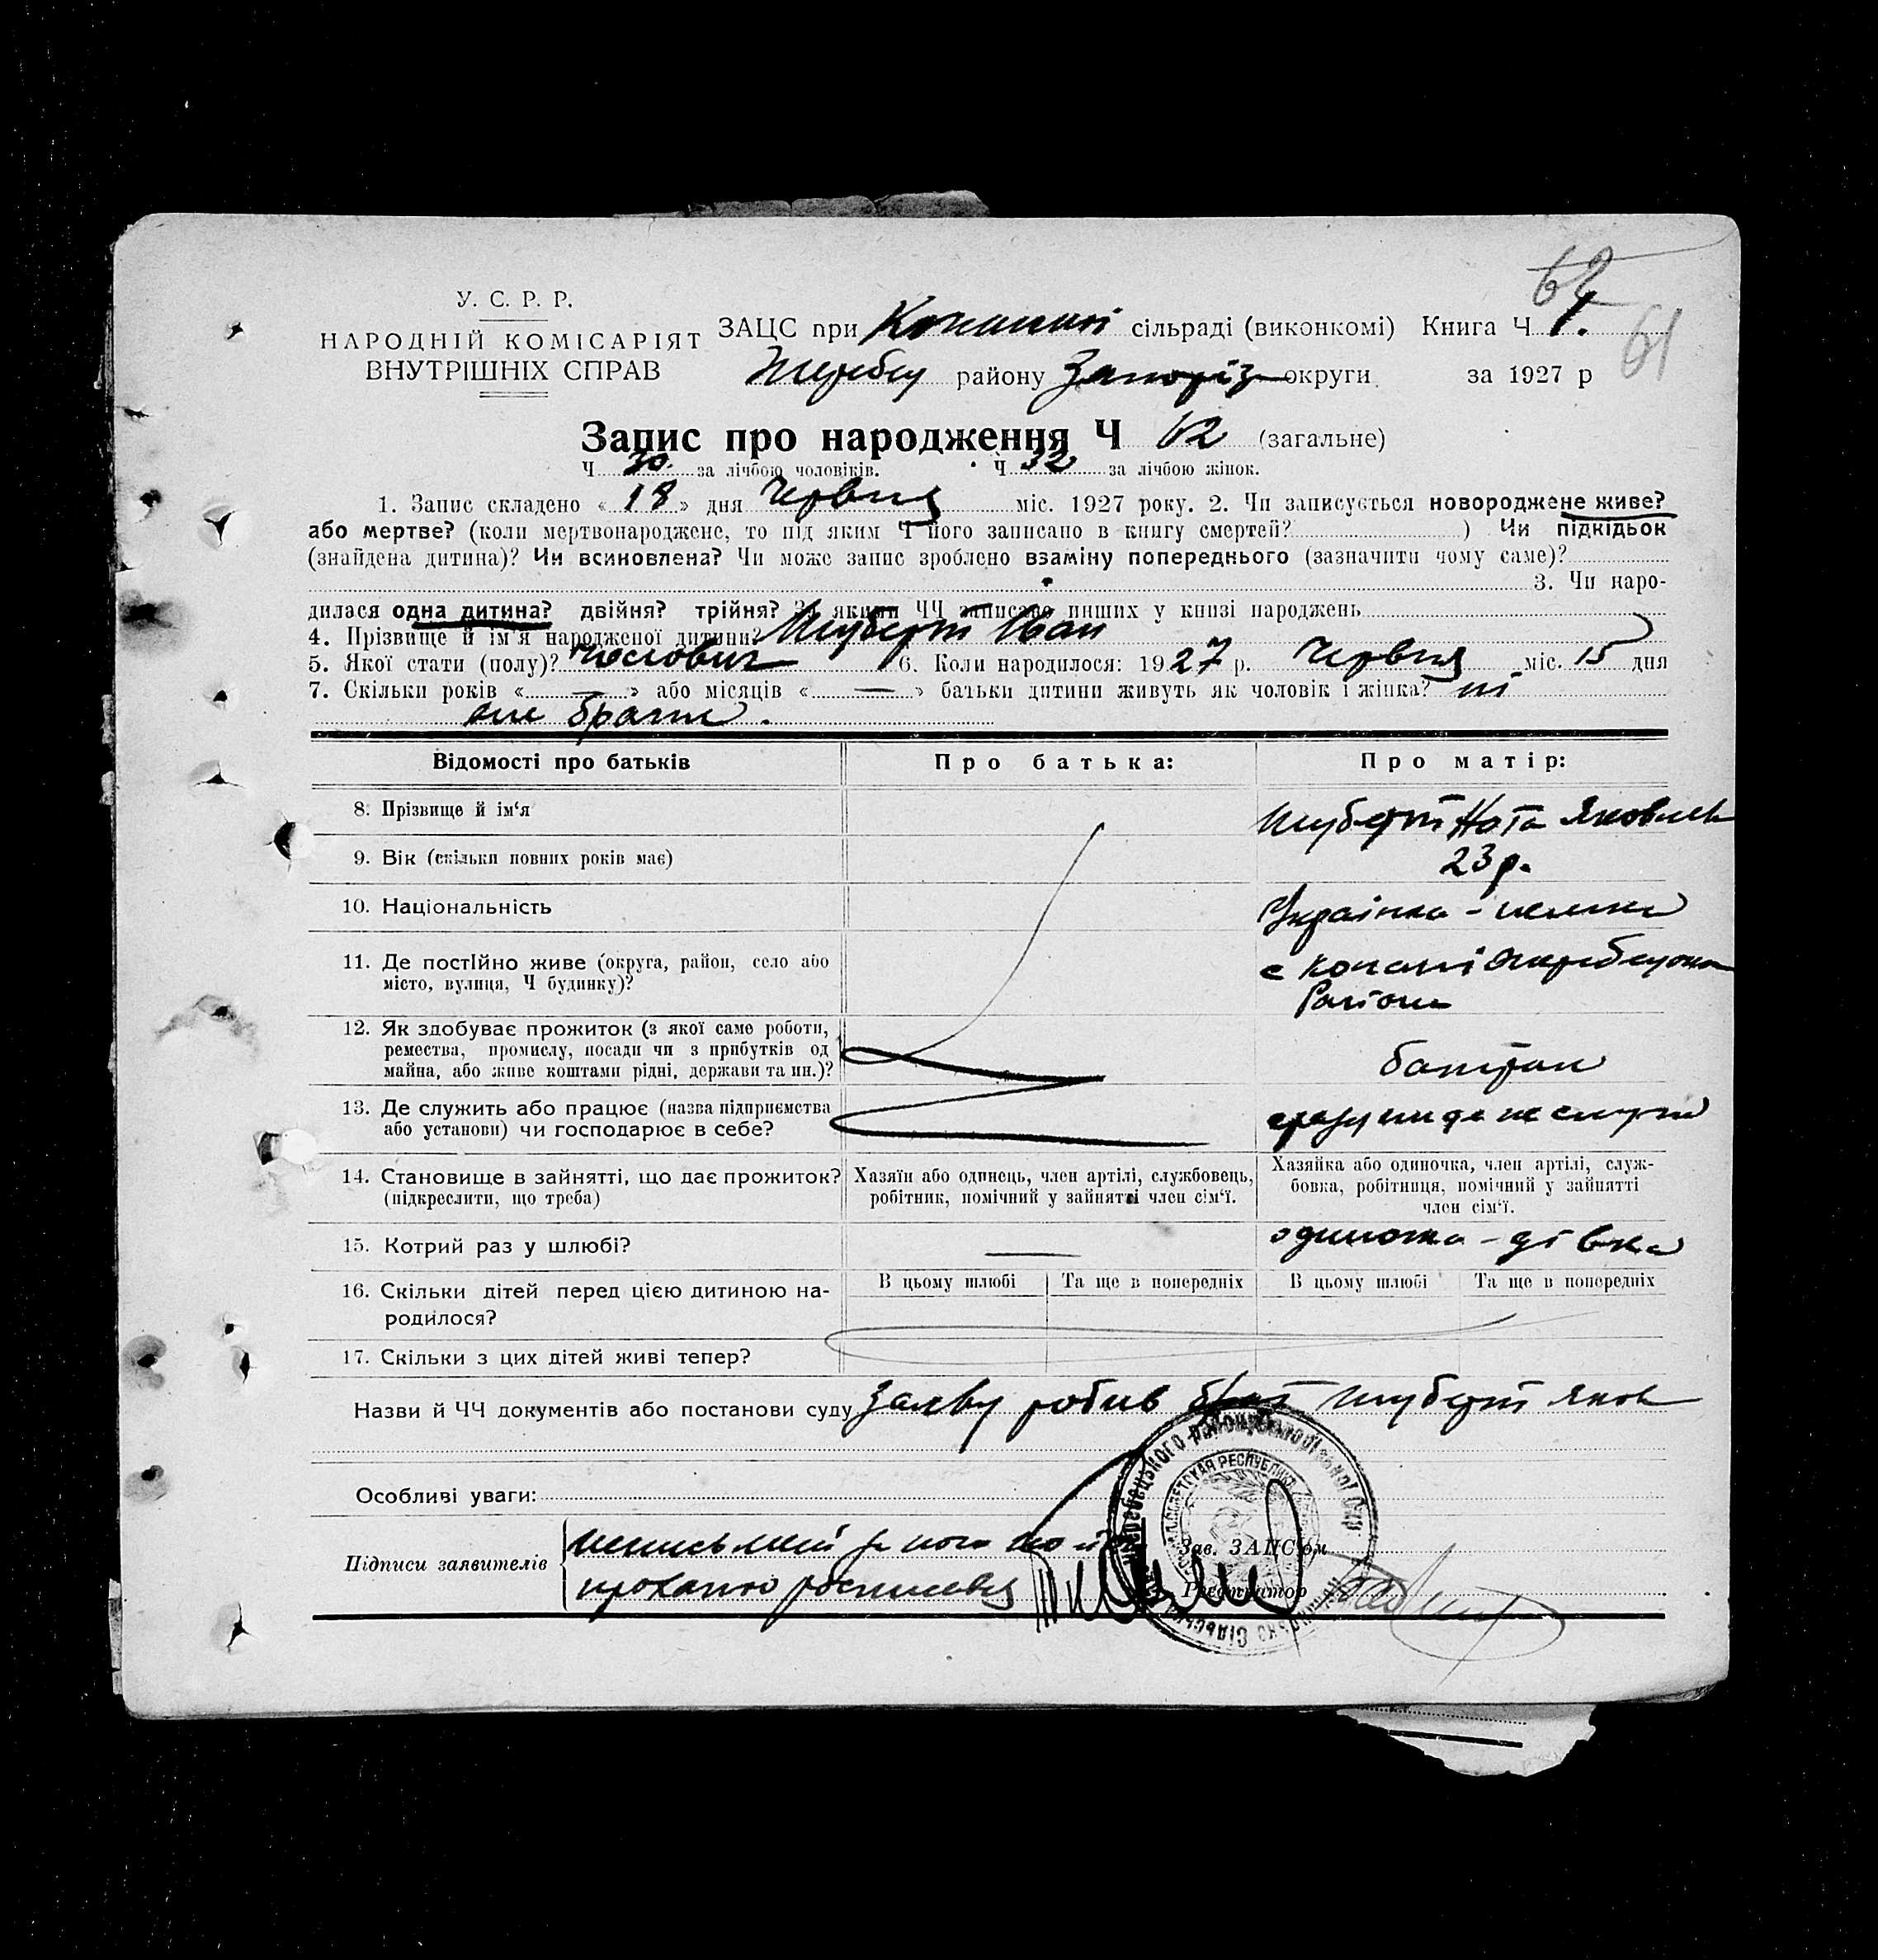 62
61
У. С. Р. Р.
НАРОДНІЙ КОМІСАРІЯТ
ВНУТРІШНІХ СПРАВ
ЗАЦС при Копанської сільраді (виконкомі) Книга Ч 1.
Жереб району Запоріз округи за 1927 р
Запис про народження Ч 62 (загальне)
Ч 30 за лічбою чоловіків. Ч 32 за лічбою жінок.
1. Запис складено «18» дня Червня міс. 1927 року. 2. Чи записується новороджене живе?
або мертве? (коли мертвонароджене, то під яким Ч його записано в книгу смертей? ) Чи підкідьок
(знайдена дитина)? Чи всиновлена? Чи може запис зроблено взаміну попереднього (зазначити чому саме)?
3. Чи наро-
дилася одна дитина? двійня? трійня? За якими ЧЧ записано инших у книзі народжень
4. Прізвище й ім'я народженої дитини? Шуберт Іван
5. Якої стати (полу)? Чоловіч 6. Коли народилося: 1927 р. Червня міс. 15 дня
7. Скільки років « — » або місяців « — » батьки дитини живуть як чоловік і жінка? ні
Відомості про батьків
Про батька:
Про матір:
8. Прізвище й ім‘я
Шуберт Ната Яковлев
9. Вік (скільки повних років має)
23 р.
10. Національність
Українка -
11. Де постІйно живе (округа, район, село або
місто, вулиця, Ч будинку)?
с Копані
Району
12. Як здобуває прожиток (з якої саме роботи,
ремества, промислу, посади чи з прибутків од
майна, або живе коштами рідні, держави та ин.)?
батрач
13. Де служить або працює (назва підприємства
або установи) чи господарює в себе?
14. Становище в зайнятті, що дає прожиток?
(підкреслити, що треба)
Хазяїн або одинець, член артілі, службовець,
робітник, помічний у зайнятті член сім‘ї.
Хазяйка або одиночка, член артілі, служ-
бовка, робітниця, помічний у зайнятті
член сім‘ї.
15. Котрий раз у шлюбі?
—
одиночка - дівка
16. Скільки дітей перед цією дитиною на-
родилося?
В цьому шлюбі Та ще в попередніх В цьому шлюбі Та ще в попередніх
17. Скільки з цих дітей живі тепер?
Назви й ЧЧ документів або постанови суду Заяву робив брат Шуберт Яков
Особливі уваги:
Підписи заявителів
неписьмений за його
проханню росписався
Зав. ЗАЦС'ом
Реєстратор